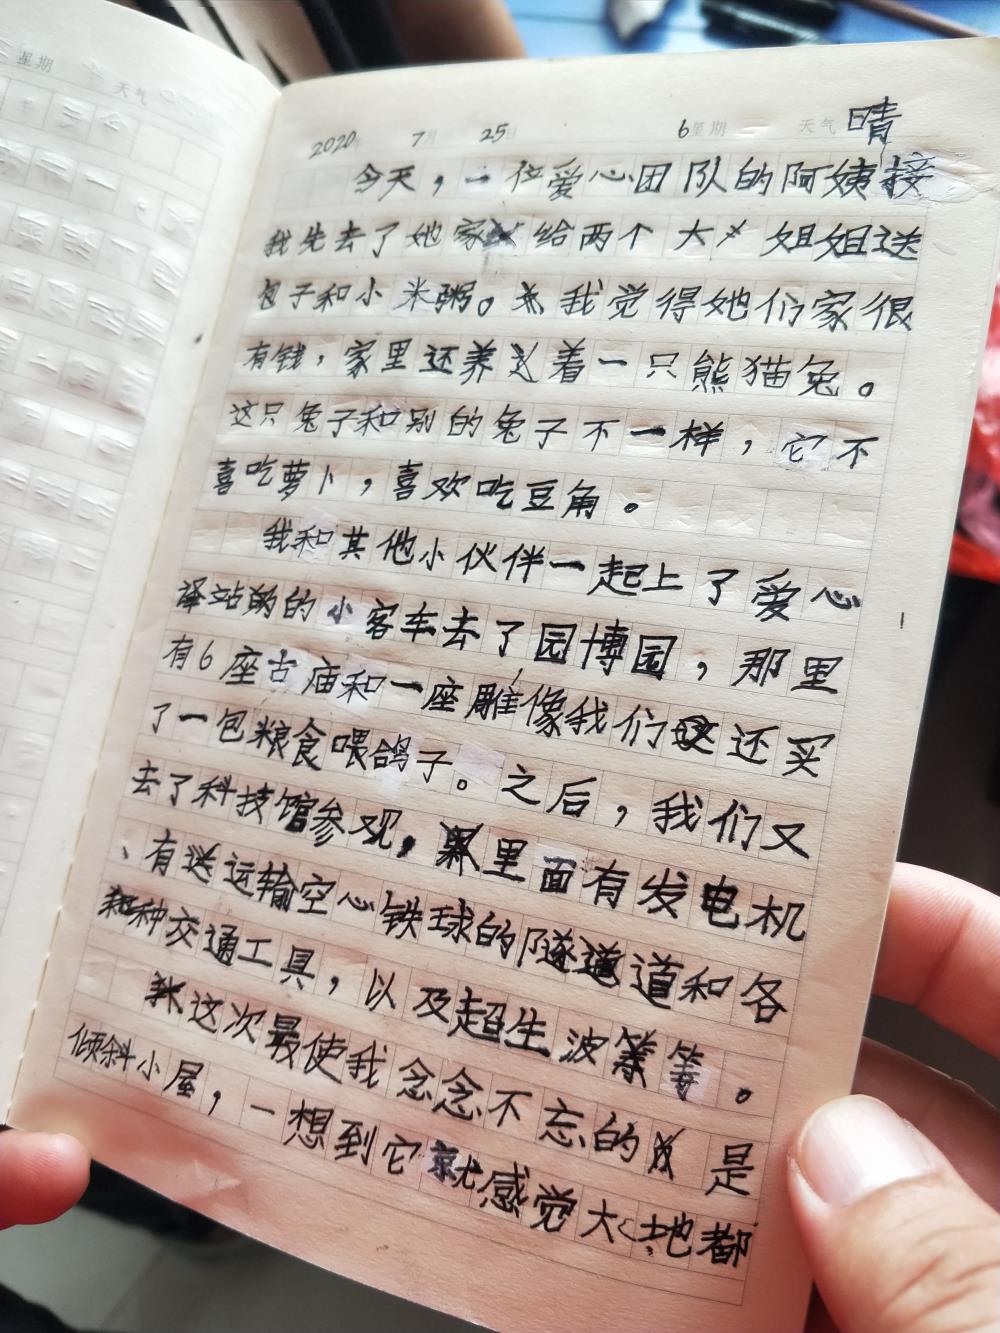 2020年 7月 25日 6星期 天气 晴
今天，一位爱心团队的阿姨接
我先去了她家给两个大姐姐送
包子和小米粥。我觉得她们家很
有钱，家里还养着一只熊猫兔。
这只兔子和别的兔子不一样，它不
喜吃萝卜，喜欢吃豆角。
我和其他小伙伴一起上了爱心
译站的的小客车去了园博园，那里
有6座古庙和一座雕像我们还买
了一包粮食喂鸽子。之后，我们又
去了科技馆参观，里面有发电机
、有送运输空心铁球的隧道道和各
种交通工具，以及超生波等等。
这次最使我念念不忘的是
倾斜小屋，一想到它就感觉大地都
星期
天气